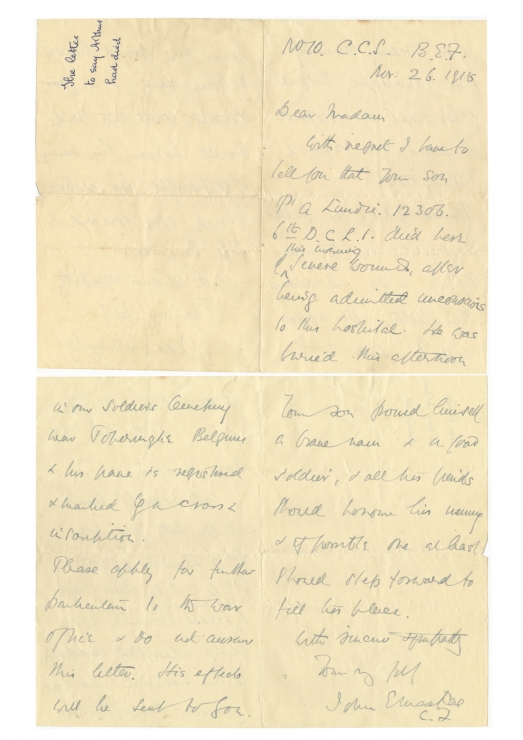 The letter
to say Arthur
had died
No 10. C.C.S. B.E.F.
Nov. 26. 1915
Dear Madam
With regret I have to
tell you that your son
Pt A 12306.
6th D.C.L.I. died here
this morning
of severe wounds, after
being admitted unconscious
to this hospital. He was
buried this afternoon
in our Soldiers Cemetery
near Belgium
& his name is registered
& marked by a cross &
inscription.
Please apply for further
particulars to the War
Office & do not answer
this letter. His effects
will be sent to you.
Your son proved himself
a brave man & a good
soldier, & all his friends
should honour his memory
& if possible one at least
should step forward to
fill his place.
With sincere sympathy
John
C.F.